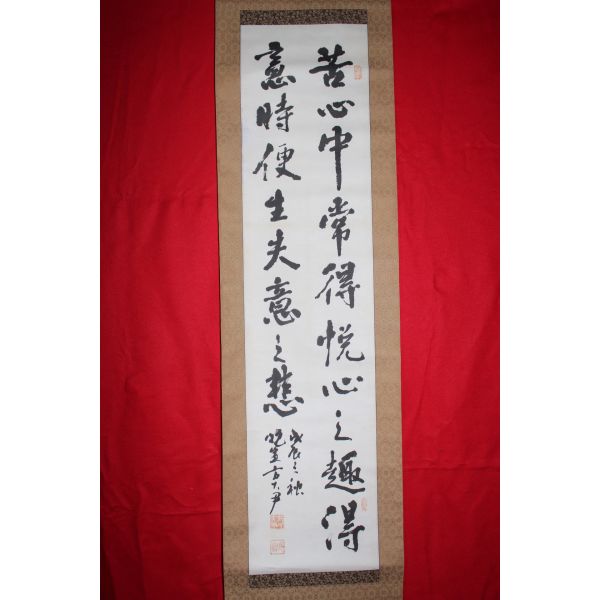 苦心中常得悅心之趣得
意時便生失意之悲
戊辰之秋